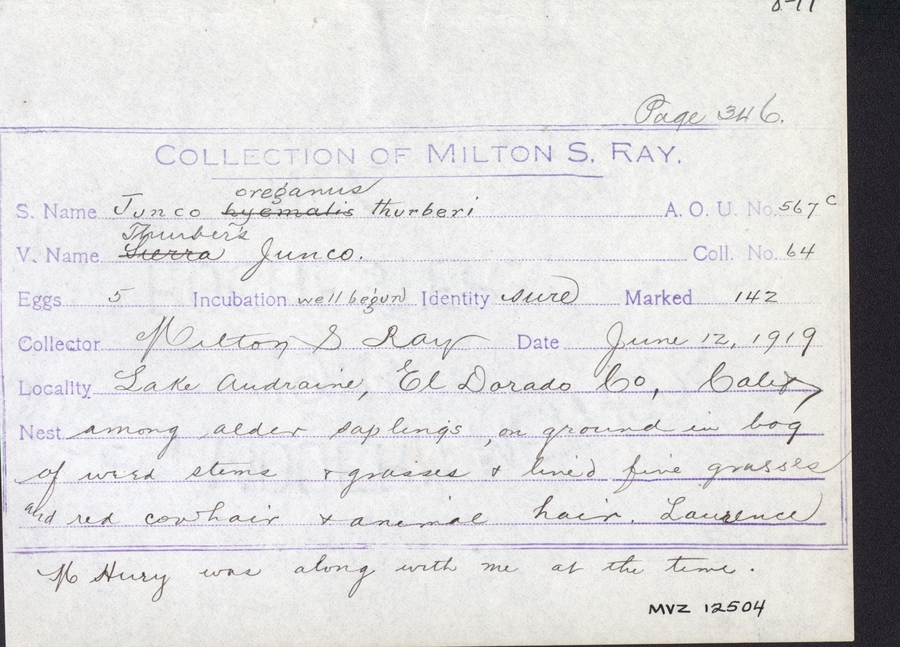 8-11
Page 346.
COLLECTION OF MILTON S. RAY.
oreganus
S. Name Junco hyemalis thurberi A. O. U. No. 567c
Thurber's
V. Name Sierra Junco. Coll. No. 64
Eggs 5 Incubation well begun Identity sure Marked 142
Collector Milton S Ray Date June 12, 1919
Locality Lake Audraine, El Dorado Co, Calif
Nest among alder saplings, on ground in bog
of weed stems & grasses & lined fine grasses
and red cowhair & animal hair. Laurence
M Huey was along with me at the time.
MVZ 12504